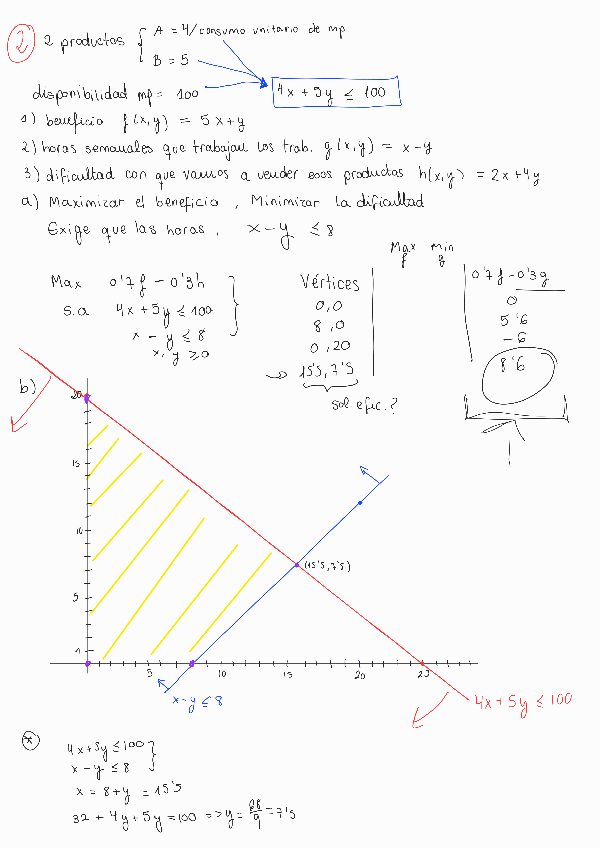 2
2 productos { A = 4/consumo unitario de mp
B = 5
disponibilidad mp = 100
4x + 5y ≤ 100
1) beneficio f(x,y) = 5x+y
2) horas semanales que trabajan los trab. g(x,y) = x-y
3) dificultad con que vamos a vender esos productos h(x,y) = 2x+4y
a) Maximizar el beneficio, Minimizar la dificultad
Exige que las horas, x-y ≤ 8
Max 0'7f - 0'3h
s.a 4x + 5y ≤ 100
x - y ≤ 8
x, y ≥ 0
Vértices
0,0
8,0
0,20
15'5, 7'5
sol. efic.?
Max f
Min g
0'7f - 0'3g
0
5'6
-6
8'6
b)
20
15
10
5
1
5
15
20
25
(15'5, 7'5)
x-y ≤ 8
4x + 5y ≤ 100
*
4x+5y ≤ 100
x-y ≤ 8
x = 8+y = 15'5
32 + 4y + 5y = 100 => y = 68/9 = 7'5